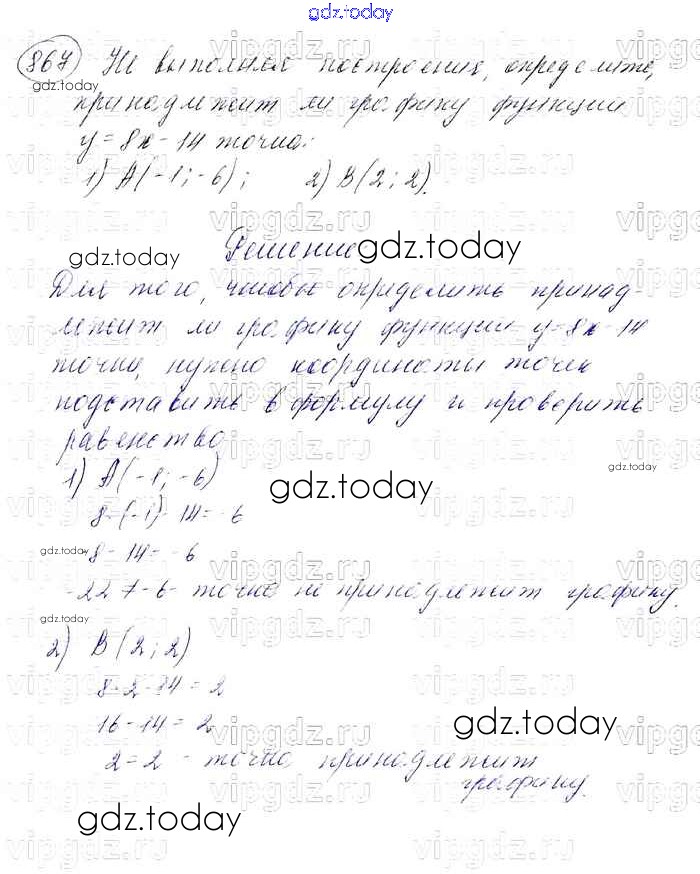 gdz.today
867 Не выполняя построения, определите,
принадлежит ли графику функции
y = 8x - 14 точка:
1) A(-1; -6); 2) B(2; 2).
Решение
Для того, чтобы определить принад-
лежит ли графику функции y=8x-14
точка, нужно координаты точек
подставить в формулу и проверить
равенство
1) A(-1; -6)
8·(-1) - 14 = -6
-8 - 14 = -6
-22 ≠ -6 - точка не принадлежит графику.
2) B(2; 2)
8·2 - 14 = 2
16 - 14 = 2
2 = 2 - точка принадлежит
графику.
gdz.today
gdz.today
gdz.today
gdz.today
gdz.today
gdz.today
gdz.today
gdz.today
gdz.today
vipgdz.ru